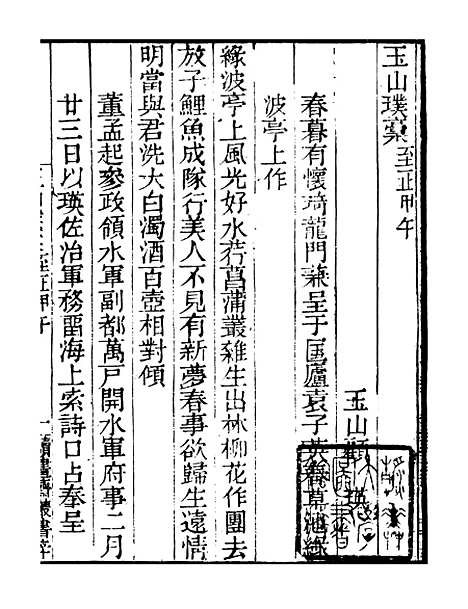 玉山璞藁 至正甲午
玉山顧瑛
春暮有懷琦龍門兼呈于匡廬袁子英春草池綠
波亭上作
綠波亭上風光好水荇菖蒲叢雜生出林柳花作團去
放子鯉魚成隊行美人不見有新夢春事欲歸生遠情
明當與君洗大白濁酒百壺相對傾
董孟起參政領水軍副都萬戶開水軍府事二月
廿三日以瑛佐治軍務留海上索詩口占奉呈
一讀畫齋叢書辛